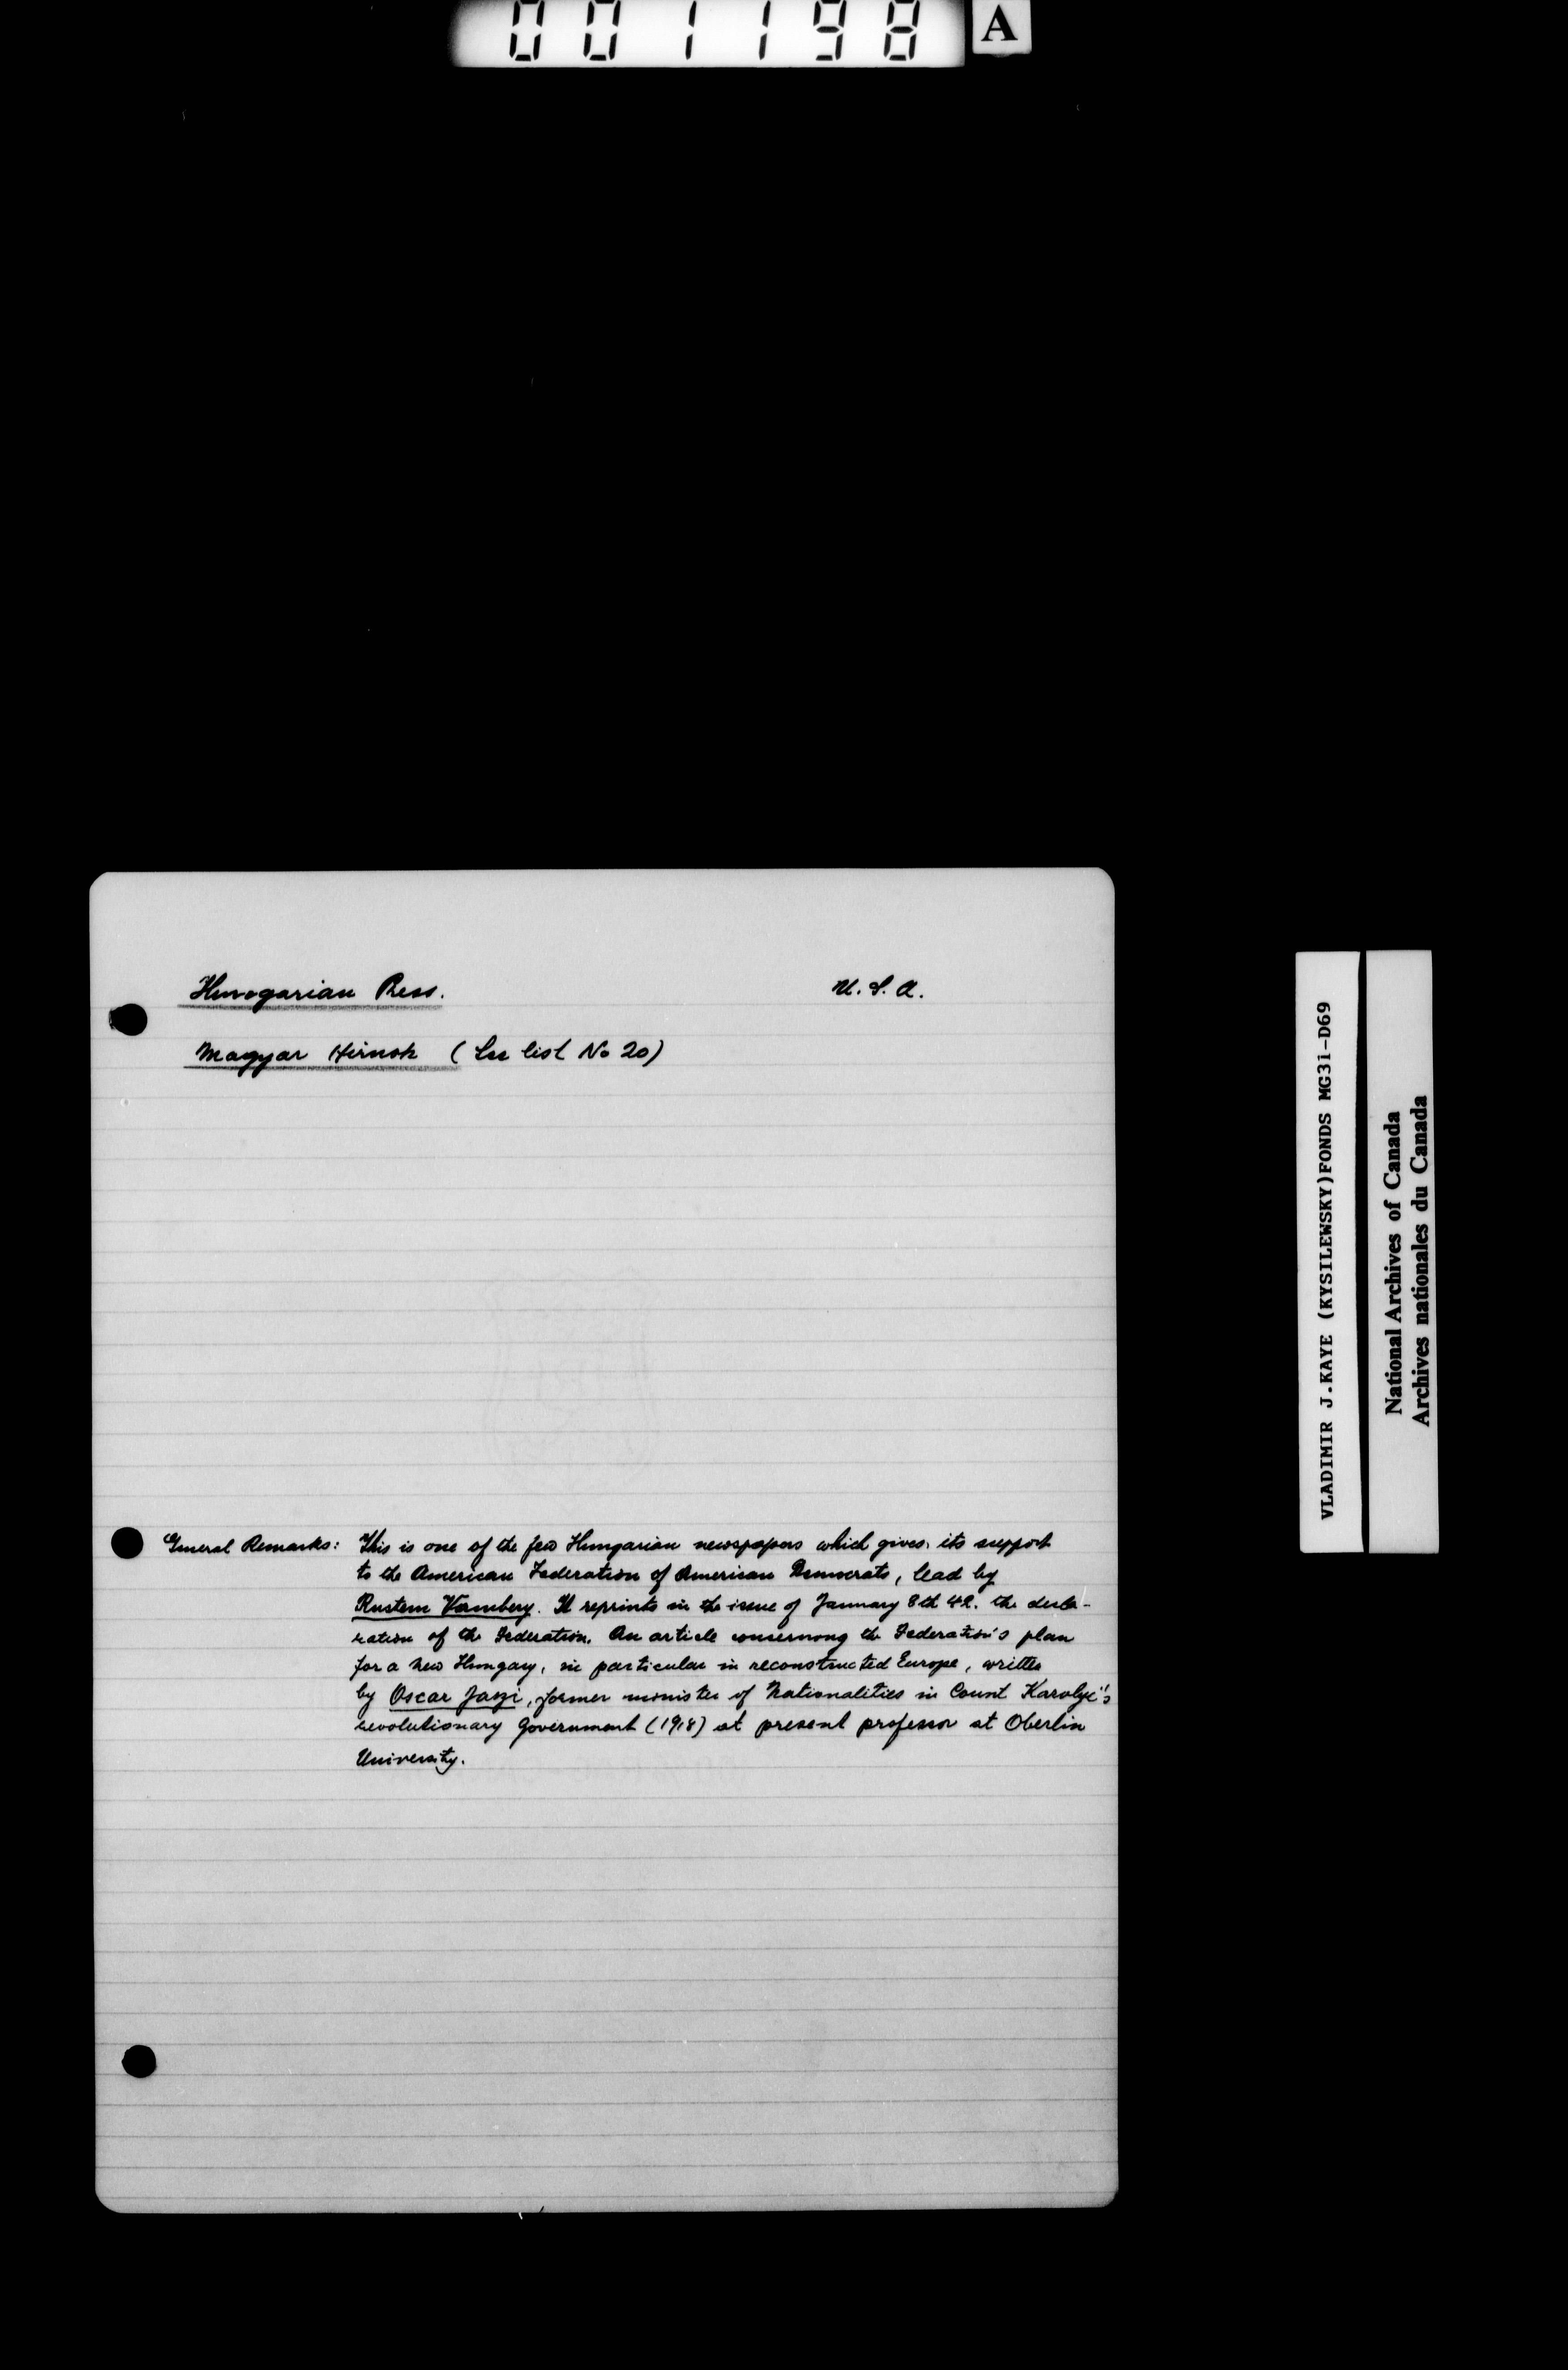 001198 A
Hunogarian Press. U.S.A.
Magyar Hirnok (See list No 20)
General Remarks: This is one of the few Hungarian newspapers which gives its support
to the American Federation of American Democrats, lead by
Rustem Vambery. It reprints in the issue of January 8th 42. the decla-
ration of the Federation. An article concernong the Federation's plan
for a new Hungary, in particular in reconstructed Europe, written
by Oscar Jaszi, former minister of Nationalities in Count Karolyi's
revolutionary government (1918) at present professor at Oberlin
University.
VLADIMIR J.KAYE (KYSILEWSKY)FONDS MG31-D69
National Archives of Canada
Archives nationales du Canada